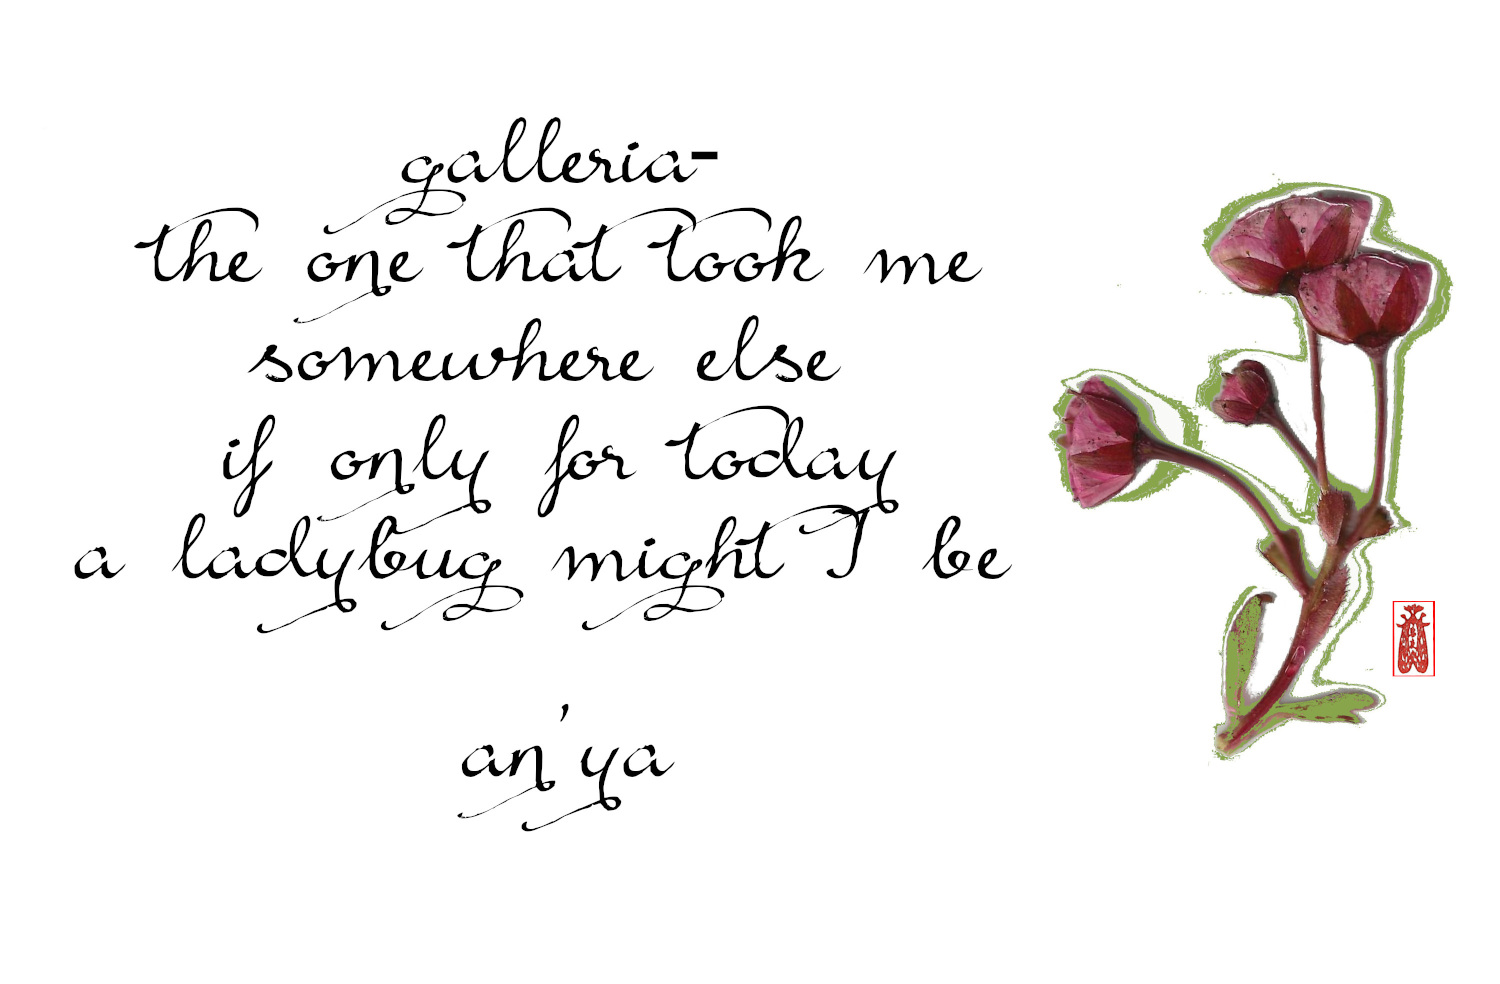 galleria-
the one that took me
somewhere else
if only for today
a ladybug might I be
an'ya